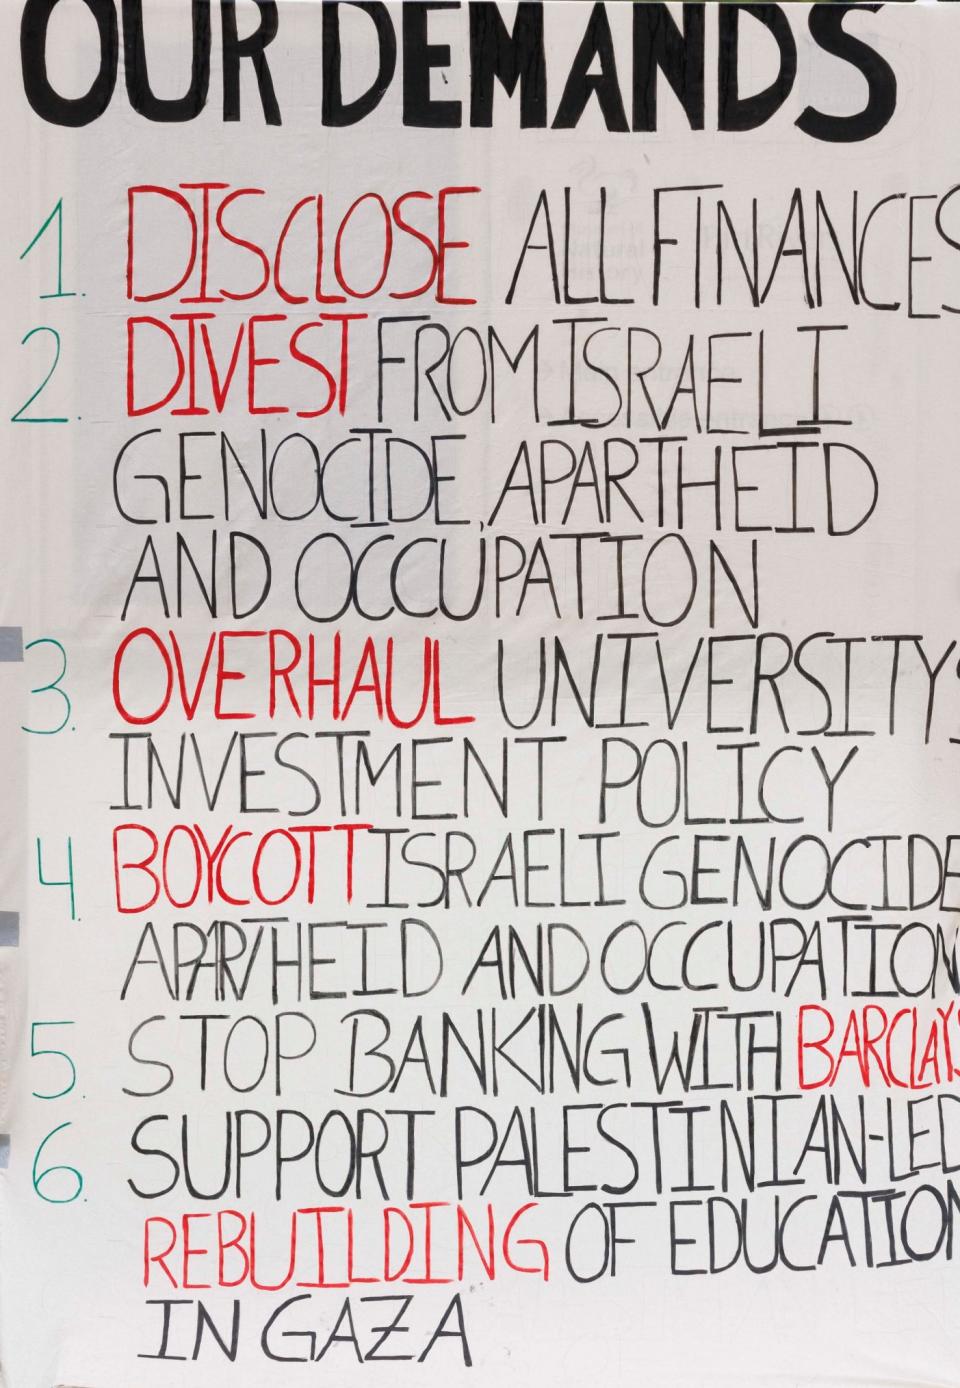 OUR DEMANDS
1. DISCLOSE ALL FINANCES
2. DIVEST FROM ISRAELI
GENOCIDE, APARTHEID
AND OCCUPATION
3. OVERHAUL UNIVERSITYS
INVESTMENT POLICY
4. BOYCOTT ISRAELI GENOCIDE
APARTHEID AND OCCUPATION
5. STOP BANKING WITH BARCLAYS
6. SUPPORT PALESTINIAN-LED
REBUILDING OF EDUCATION
IN GAZA